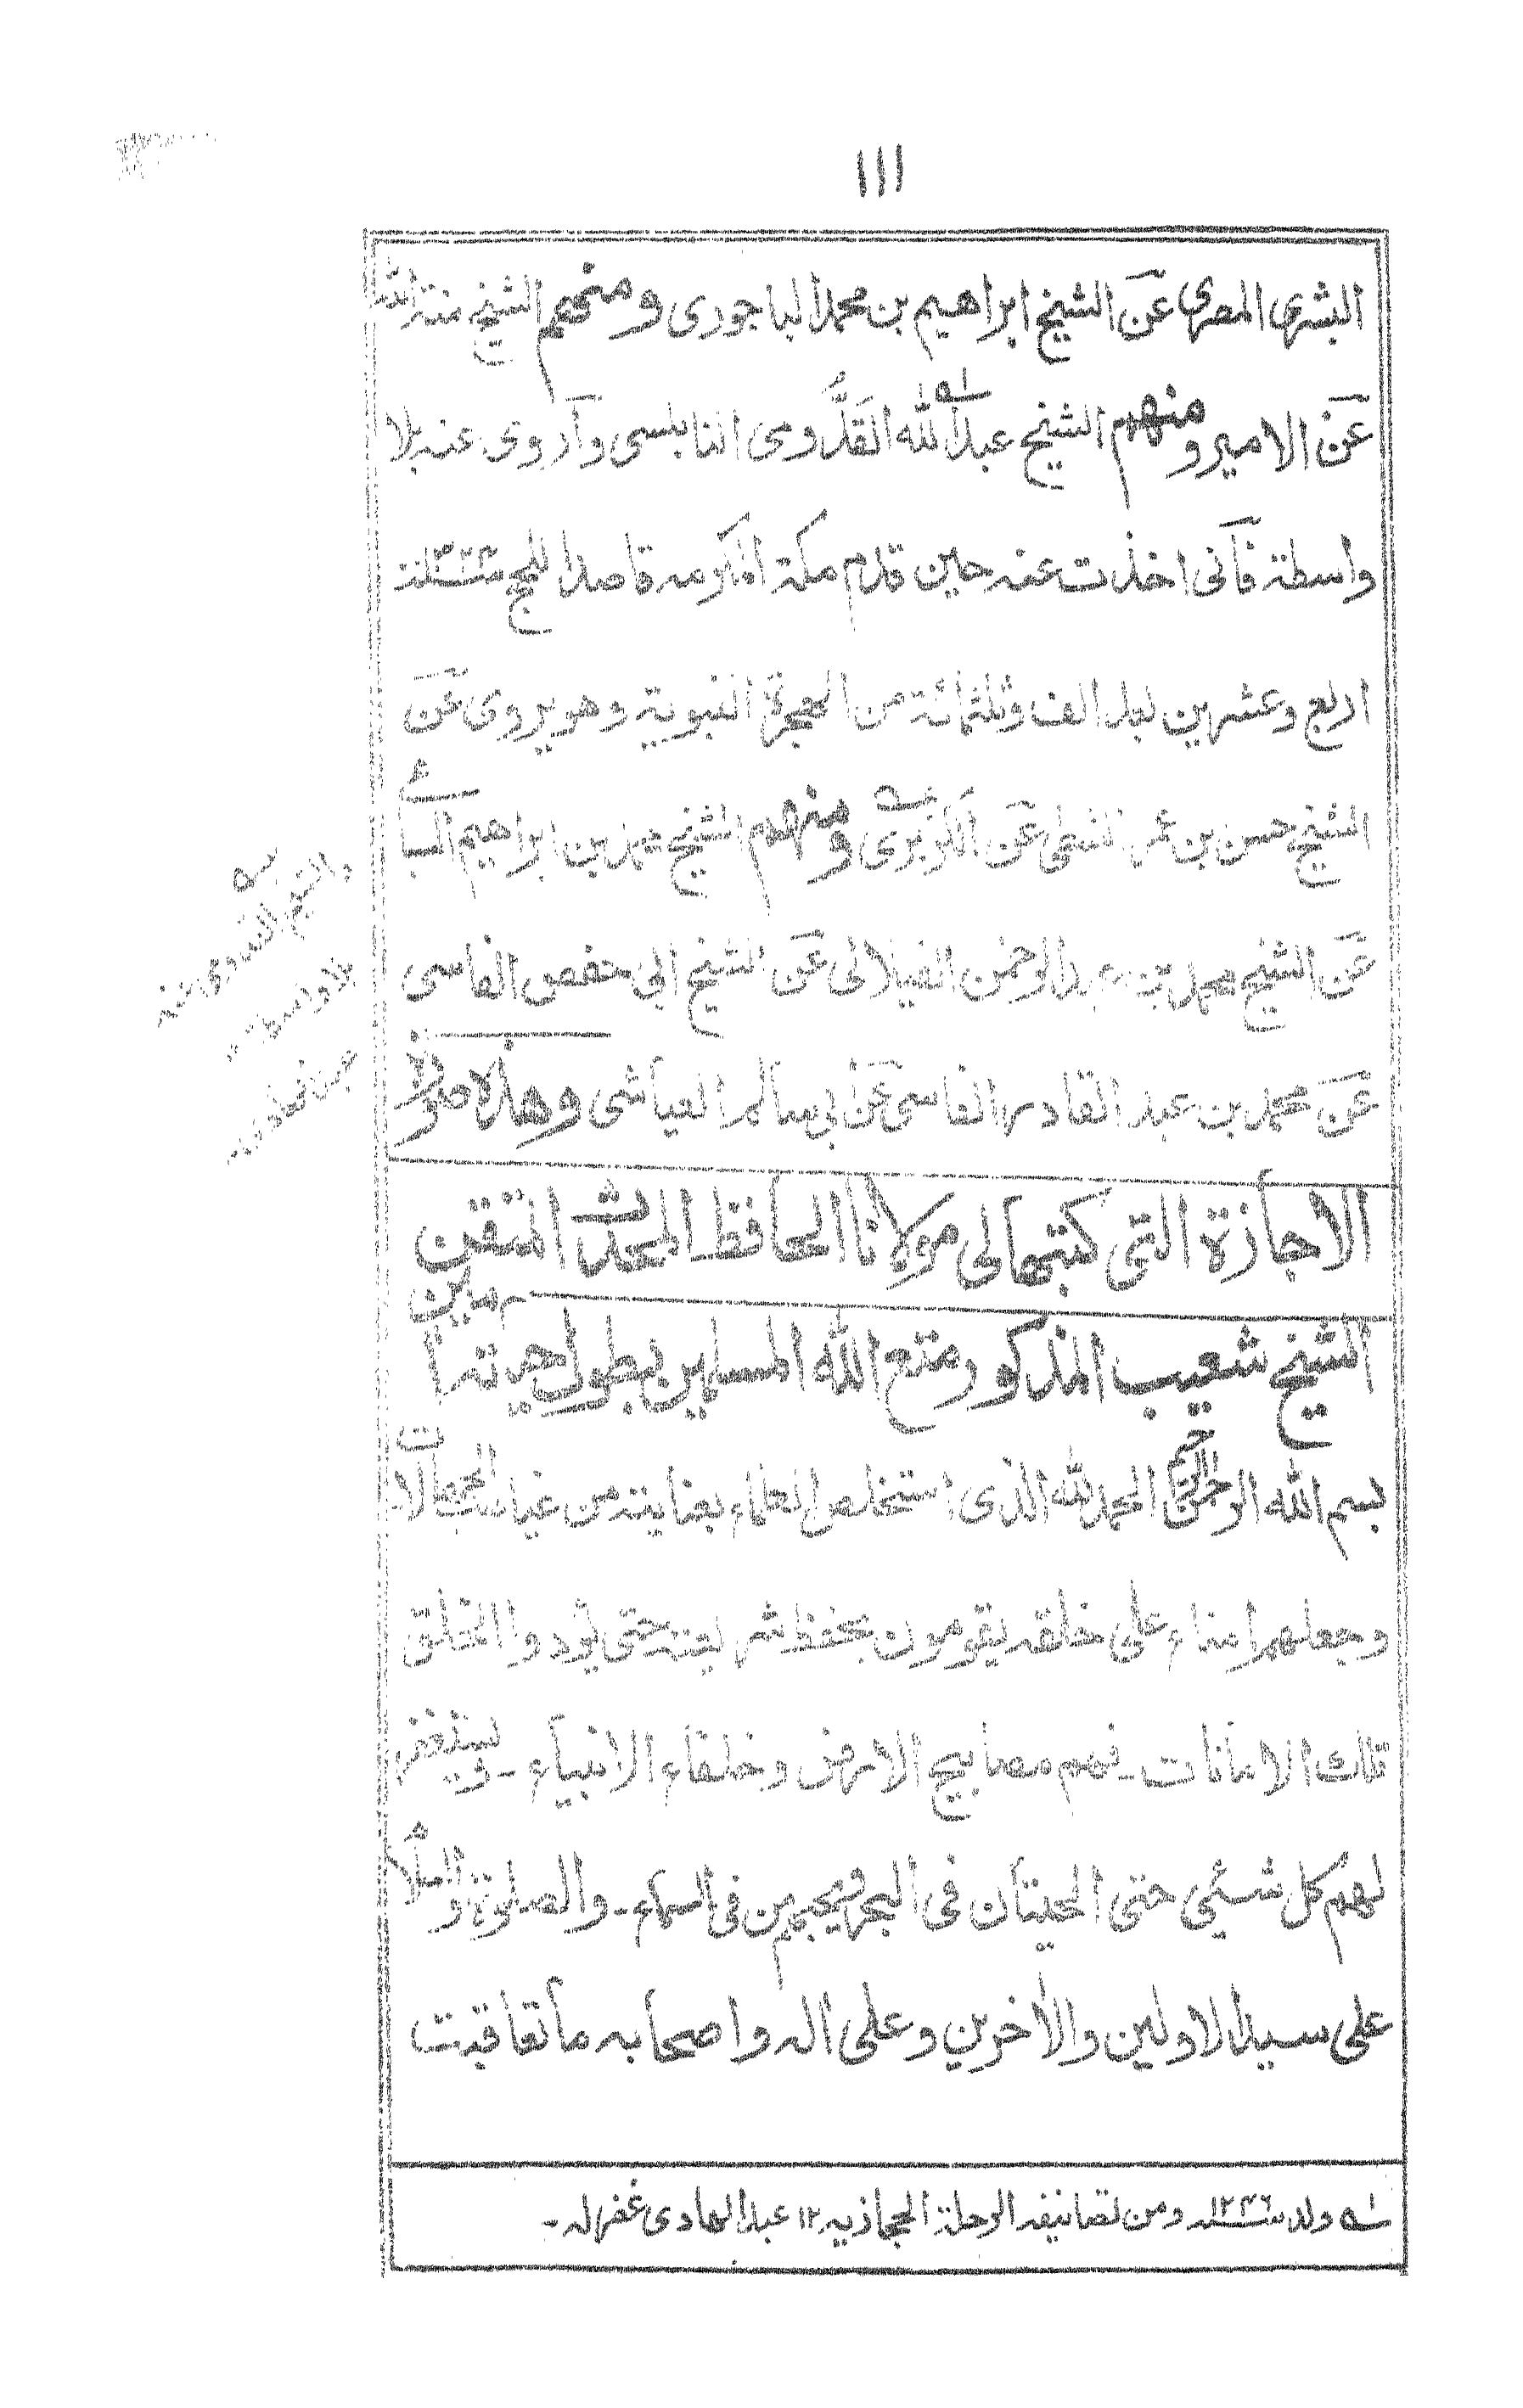 ١١١
البشرى المصرى عن الشيخ ابراهيم بن محمد الباجورى ومنهم الشيخ منة الله
عن الامير ومنهم الشيخ عبد الله القدومى النابلسى وأروى عنه بلا
واسطة فأنى اخذت عنه حين قدم مكة المكرمه قاصدا للحج سنة ١٣٢٤
اربع وعشرين بعد الف وثلثمائة من الهجرة النبوية وهو يروى عن
الشيخ حسن بن عمر الشطى عن الكزبرى ومنهم الشيخ محمد بن ابراهيم السباعى
عن الشيخ محمد بن عبد الرحمن الفيلالى عن الشيخ ابي حفص الفاسى
عن محمد بن عبد القادر الفاسى عن ابى سالم العياشى وهذه صورة
الاجازة التى كتبها لى مولانا الحافظ المحدث المتقن
الشيخ شعيب المذكور متع الله المسلمين بطول حياته امين
بسم الله الرحمن الرحيم الحمد لله الذى استخلص العلماء بعنايته من غياهب الجهالات
وجعلهم امناء على خلقه يقومون بحفظ شريعته حتى يؤدوا الخلق
تلك الامانات - فهم مصابيح الارض وخلفاء الانبياء - ويستغفر
لهم كل شئى حتى الحيتان فى البحر ويحبهم من فى السماء - والصلوة والسلام
على سيد الاولين والاخرين وعلى اله واصحابه ما تعاقبت
له ولد سنه ١٢٤٦ ومن تصانيفه الرحلة الحجازيه ١٢ عبد الهادى غفر له -
بلا واسطة